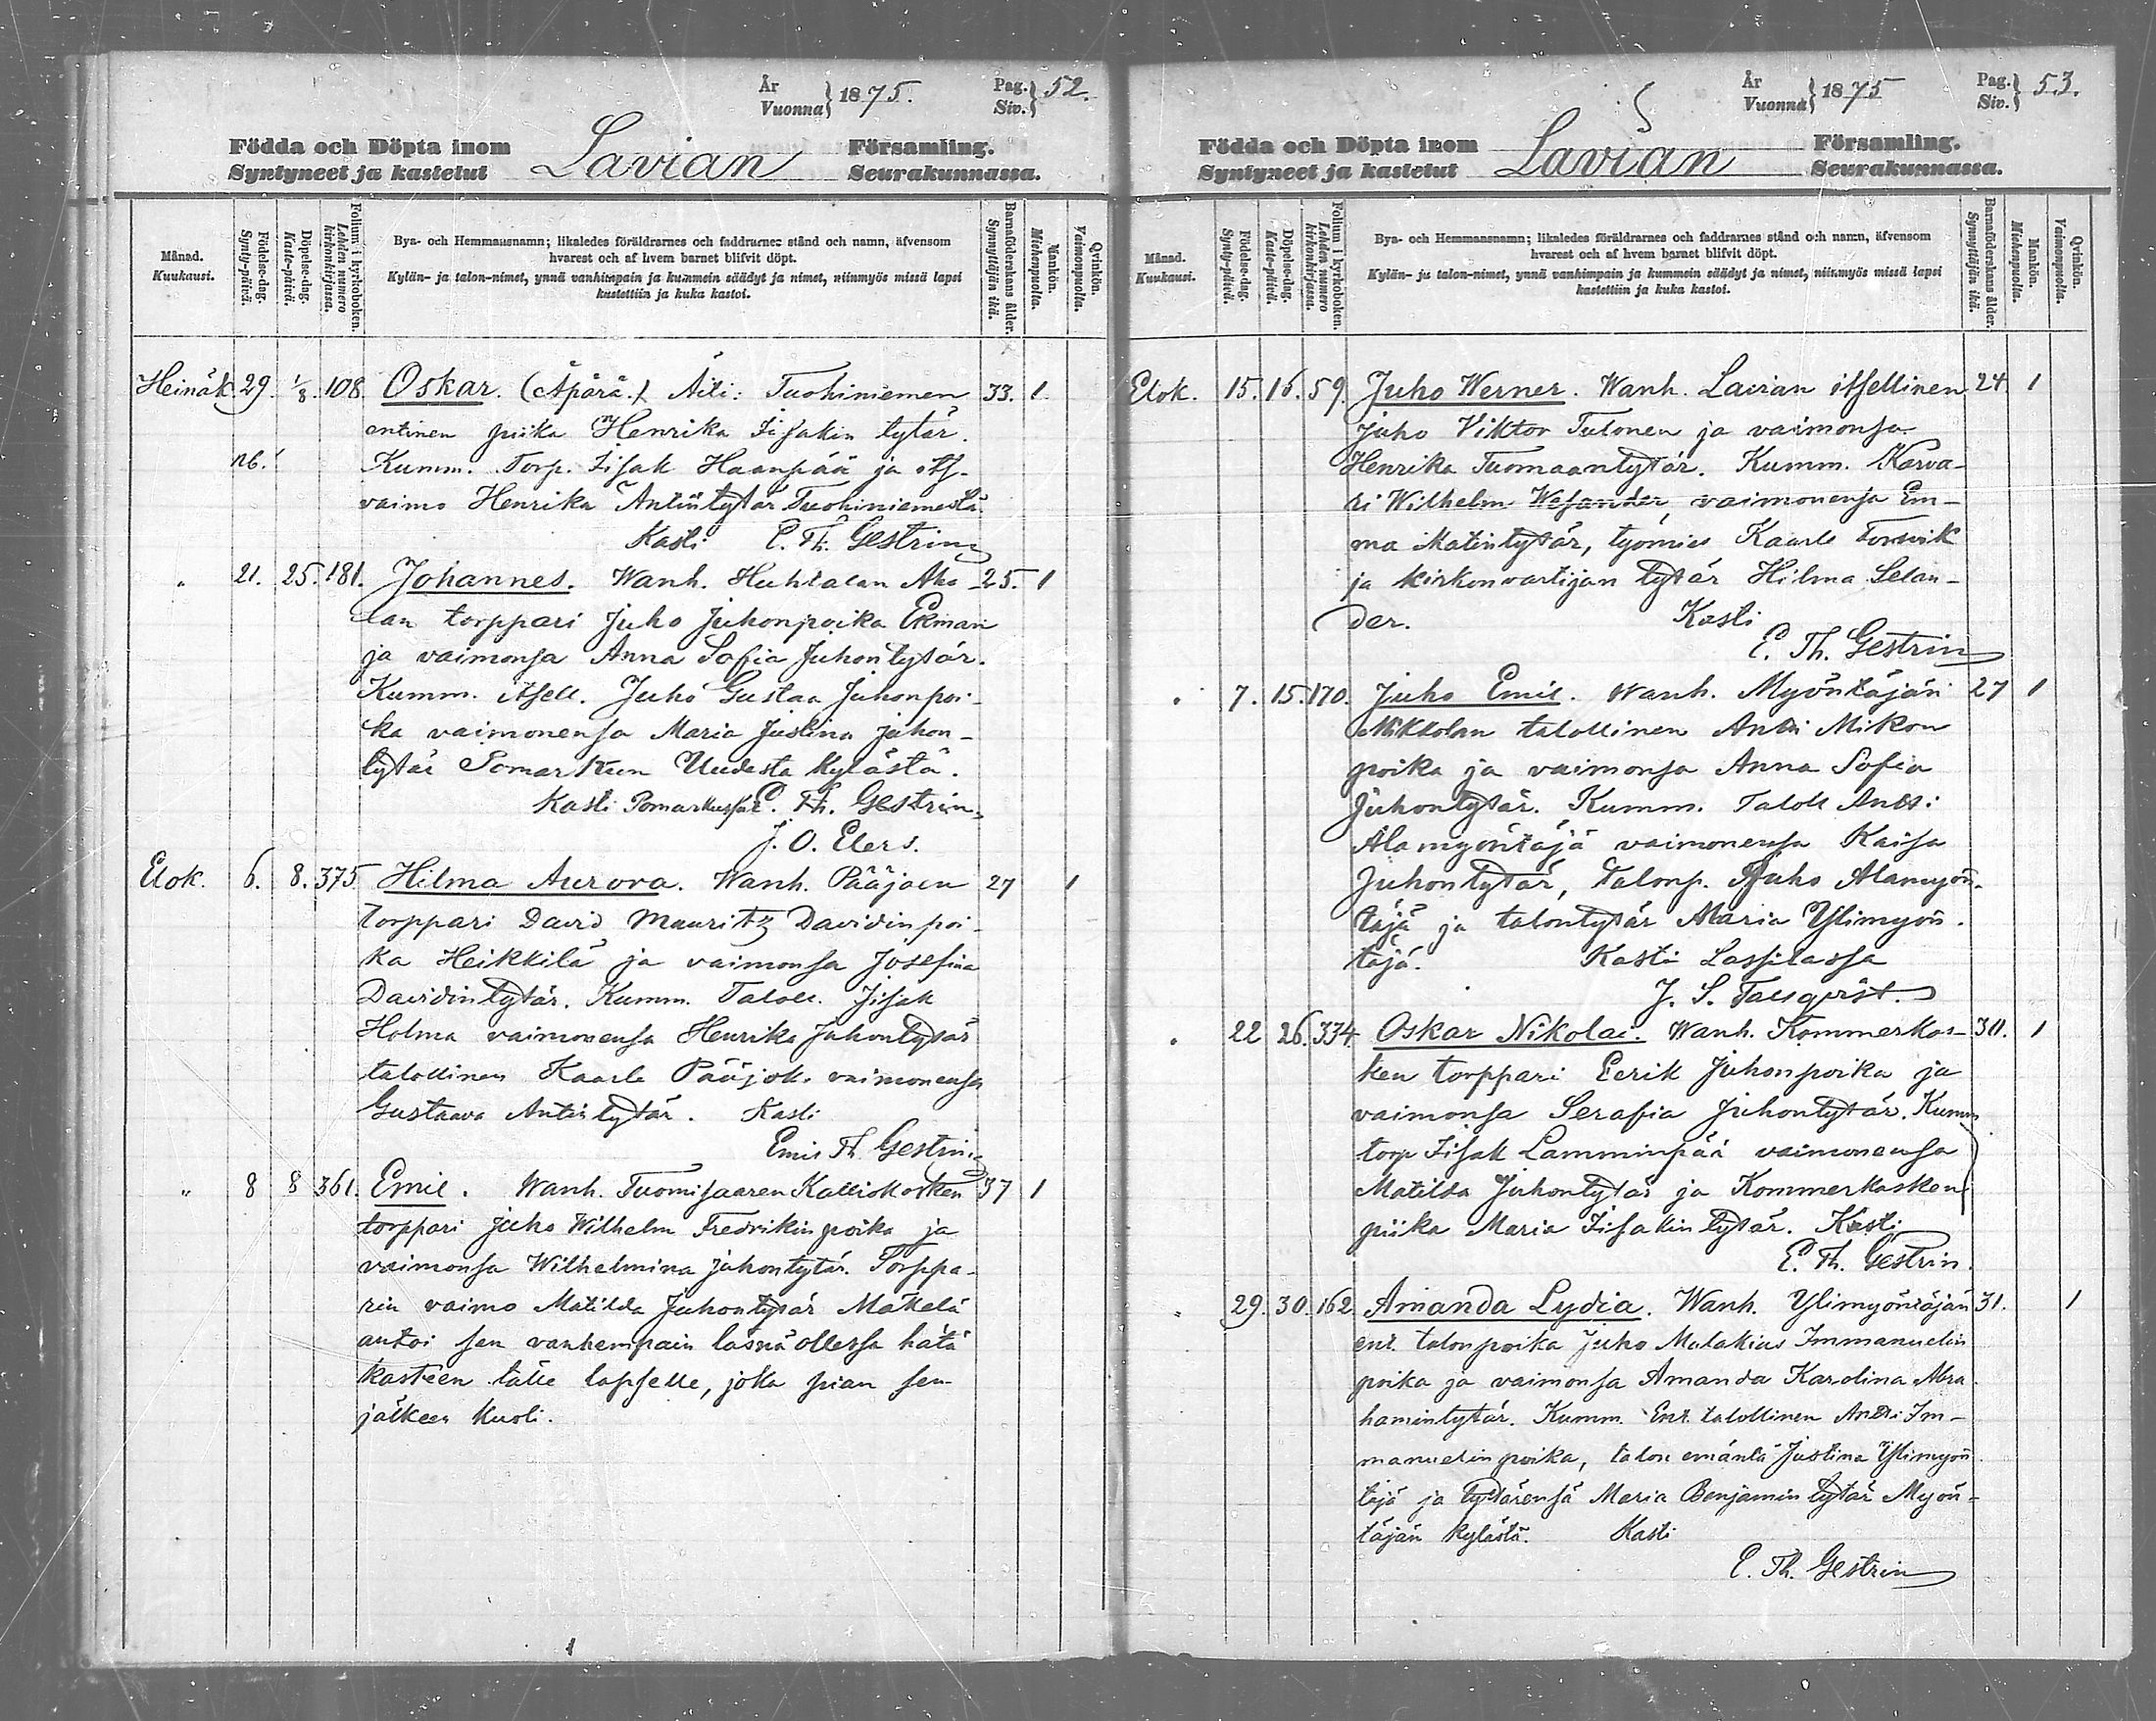 År
Vuonna} 1875. Pag.
Siv.} 52.
Födda och Döpta inom
Syntyneet ja kastetut Lavian Församling.
Seurakunnassa.
Månad.
Kuukausi.
Födelse-dag.
Synty-päivä.
Döpelse-dag.
Kaste-päivä.
Folium i kyrkoboken.
Lehden numero
kirkonkirjassa.
Bya- och Hemmansnamn; likaledes föräldrarnes och faddrarnes stånd och namn, äfvensom
hvarest och af hvem barnet blifvit döpt.
Kylän- ja talon-nimet, ynnä vanhimpain ja kummein säädyt ja nimet, niinmyös missä lapsi
kastettiin ja kuka kastoi.
Barnaföderskans ålder.
Synnyttäjän ikä.
Mankön.
Miehenpuolia.
Qvinkön.
Vaimonpuolia.
Heinäk. 29. 1/8. 108. Oskar. (Äpärä.) Äiti: Tuohiniemen 33. 1.
entinen piika Henrika Iisakin tytär.
nb. Kumm. Torp. Iisak Haanpää ja its.
vaimo Henrika Antintytär Tuohiniemestä.
Kasti E. Th. Gestrin
" 21. 25. 181. Johannes. Wanh. Huhtalan Aho- 25. 1
lan torppari Juho Juhonpoika Ekman
ja vaimonsa Anna Sofia Juhontytär.
Kumm. itsell. Juho Gustaa Juhonpoi-
ka vaimonensa Maria Justina Juhon-
tytär Pomarkun Uudesta kylästä.
Kasti Pomarkussa E. Th. Gestrin
J. O. Elers.
Elok. 6. 8. 375. Hilma Aurora. Wanh. Pääjoen 27 1
torppari David Mauritz Davidinpoi-
ka Heikkilä ja vaimonsa Josefina
Davidintytär. Kumm. Taloll. Iisak
Holma vaimonensa Henrika Juhontytär
talollinen Kaarle Pääjok. vaimonensa
Gustaava Antintytär. Kasti
Emil Th. Gestrin
" 8 8 361. Emil. Wanh. Tuomisaaren Kalliokosken 37 1
torppari Juho Wilhelm Fredrikinpoika ja
vaimonsa Wilhelmina Juhontytär. Torppa-
rin vaimo Matilda Juhontytär Mäkelä
antoi sen vanhempain läsnä ollessa hätä
kasteen tälle lapselle, joka pian sen
jälkeen kuoli.
År
Vuonna} 1875 Pag.
Siv.} 53.
Födda och Döpta inom
Syntyneet ja kastetut Lavian Församling.
Seurakunnassa.
Månad.
Kuukausi.
Födelse-dag.
Synty-päivä.
Döpelse-dag.
Kaste-päivä.
Folium i kyrkoboken.
Lehden numero
kirkonkirjassa.
Bya- och Hemmansnamn; likaledes föräldrarnes och faddrarnes stånd och namn, äfvensom
hvarest och af hvem barnet blifvit döpt.
Kylän- ja talon-nimet, ynnä vanhimpain ja kummein säädyt ja nimet, niinmyös missä lapsi
kastettiin ja kuka kastoi.
Barnaföderskans ålder.
Synnyttäjän ikä.
Mankön.
Miehenpuolia.
Qvinkön.
Vaimonpuolia.
Elok. 15. 16. 59. Juho Werner. Wanh. Lavian itsellinen 24. 1
Juho Viktor Tulonen ja vaimonsa
Henrika Tuomaantytär. Kumm. Karva-
ri Wilhelm Wesander, vaimonensa Em-
ma Matintytär, työmies Kaarle Forsvik
ja kirkonvartijan tytär Hilma Selan-
der. Kasti
E. Th. Gestrin
" 7. 15. 170. Juho Emil. Wanh. Myöntäjän 27 1
Mikkolan talollinen Antti Mikon
poika ja vaimonsa Anna Sofia
Juhontytär. Kumm. Taloll Antti
Alamyöntäjä vaimonensa Kaisa
Juhontytär, talonp. Juho Alamyön-
täjä ja talontytär Maria Ylimyön-
täjä. Kasti Lassilassa
J. S. Tallqvist.
" 22 26. 334. Oskar Nikolai. Wanh. Kommerkos- 30. 1
ken torppari Eerik Juhonpoika ja
vaimonsa Serafia Juhontytär. Kumm
torp Iisak Lamminpää vaimonensa
Matilda Juhontytär ja Kommerkosken
piika Maria Iisakintytär. Kasti
E. Th. Gestrin.
" 29. 30. 162 Amanda Lydia. Wanh. Ylimyöntäjän 31. 1
ent. talonpoika Juho Malakias Immanuelin
poika ja vaimonsa Amanda Karolina Abra-
hamintytär. Kumm. Ent. talollinen Antti Im-
manuelinpoika, talon emäntä Justina Ylimyön
täjä ja tyttärensä Maria Benjamintytär Myön-
täjän kylästä. Kasti
E. Th. Gestrin